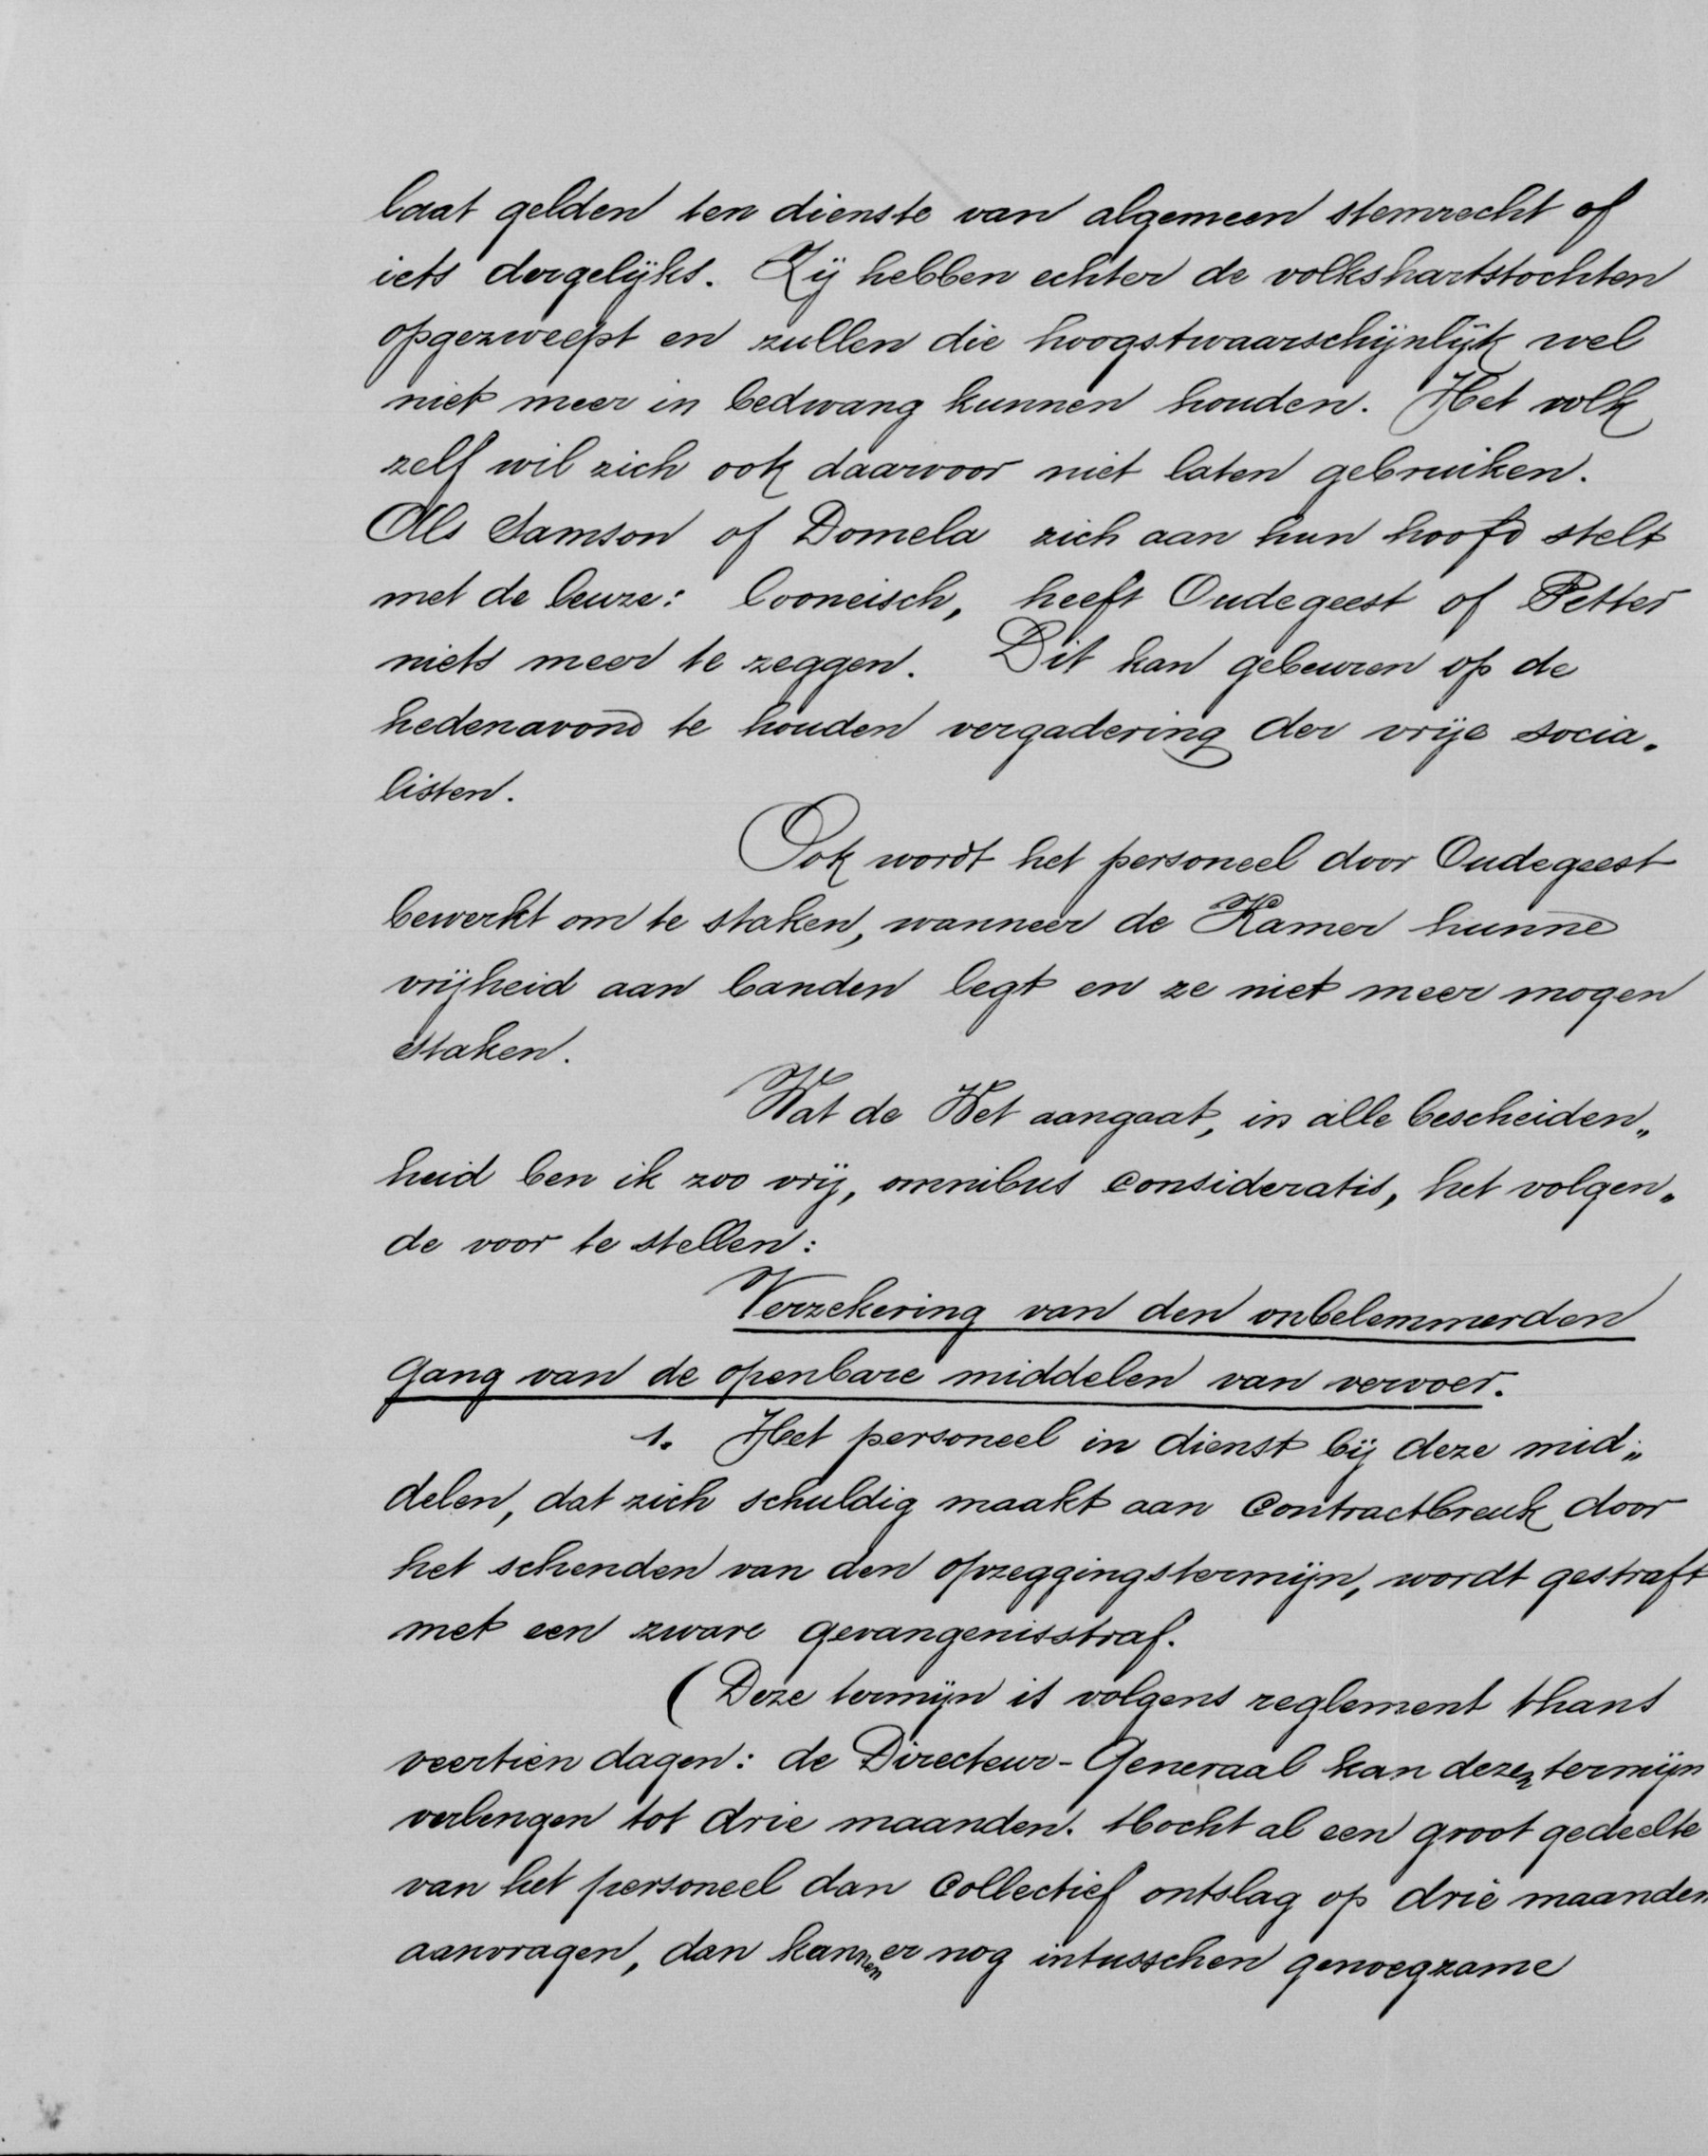 laat gelden ten dienste van algemeen stemrecht of
iets dergelijks. Zij hebben echter de volkshartstochten
opgezweept en zullen die hoogstwaarschijnlijk wel
niet meer in bedwang kunnen houden. Het volk
zelf wil zich ook daarvoor niet laten gebruiken.
Als Samson of Domela zich aan hun hoofd stelt
met de leuze: looneisch, heeft Oudegeest of Petter
niets meer te zeggen. Dit kan gebeuren op de
hedenavond te houden vergadering der vrije socia„
listen.
Ook wordt het personeel door Oudegeest
bewerkt om te staken, wanneer de Kamer hunne
vrijheid aan banden legt en ze niet meer mogen
staken.
Wat de Wet aangaat, in alle bescheiden„
heid ben ik zoo vrij, omnibus consideratis, het volgen„
de voor te stellen:
Verzekering van den onbelemmerden
gang van de openbare middelen van vervoer.
1. Het personeel in dienst bij deze mid„
delen, dat zich schuldig maakt aan contractbreuk door
het schenden van den opzeggingstermijn, wordt gestraft
met een zware gevangenisstraf.
(Deze termijn is volgens reglement thans
veertien dagen: de Directeur-Generaal kan dezen termijn
verlengen tot drie maanden. Mocht al een groot gedeelte
van het personeel dan collectief ontslag op drie maanden
aanvragen, dan kunnen er nog intusschen genoegzame